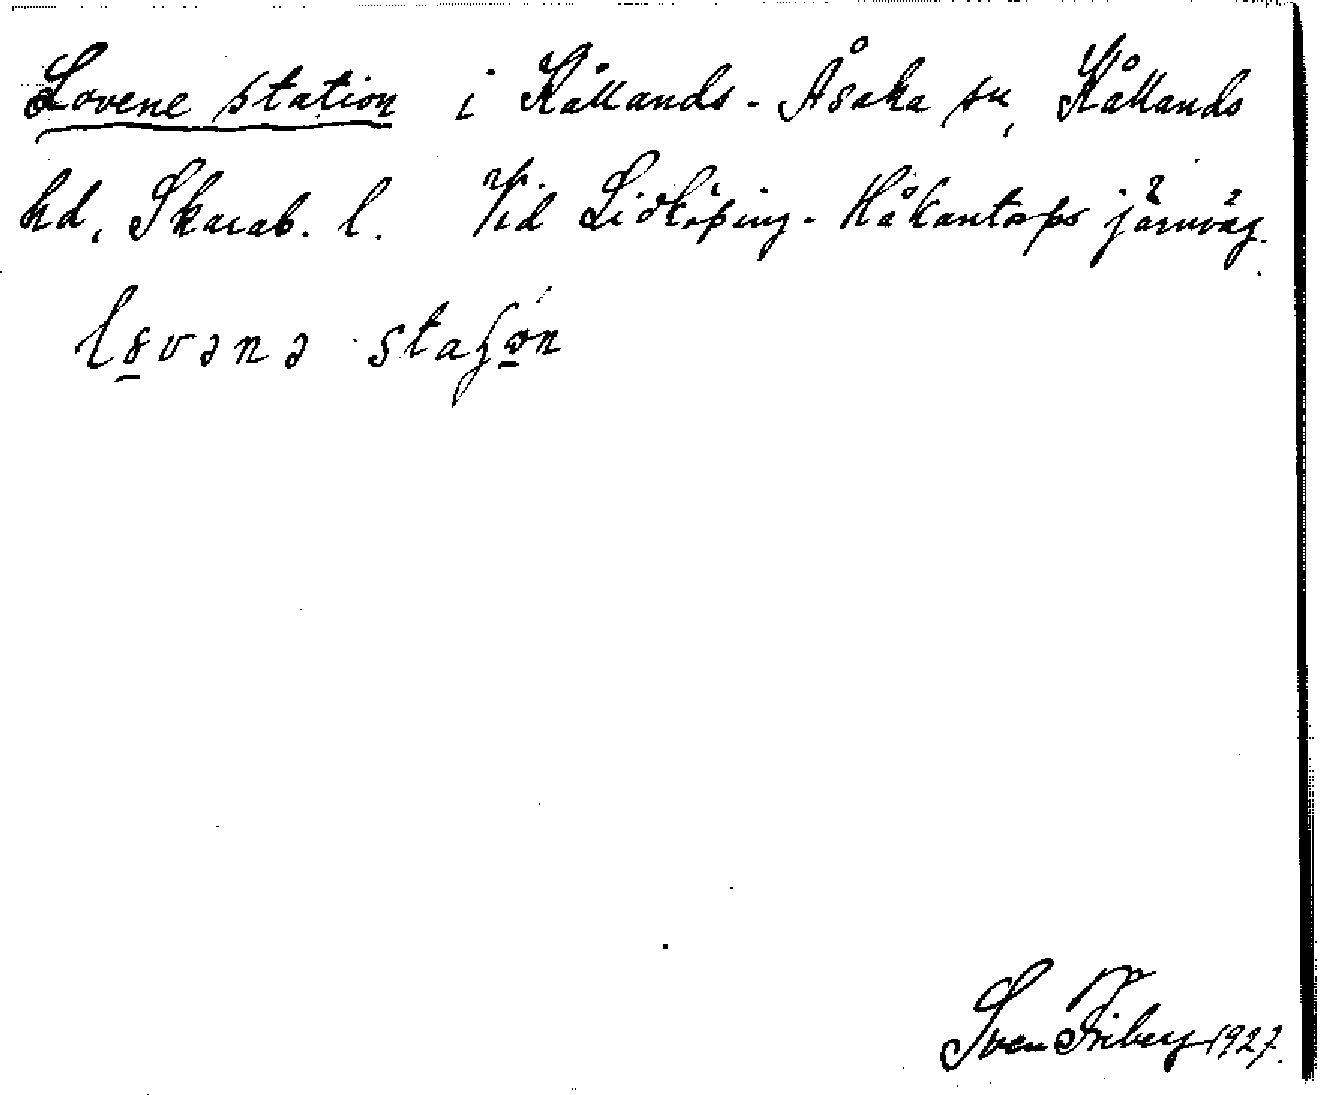 Lovene station i Kållands-Åsaka sn, Kållands
hd, Skarab. l. Vid Lidköping-Håkantorps järnväg.
Sven Friberg 1927.